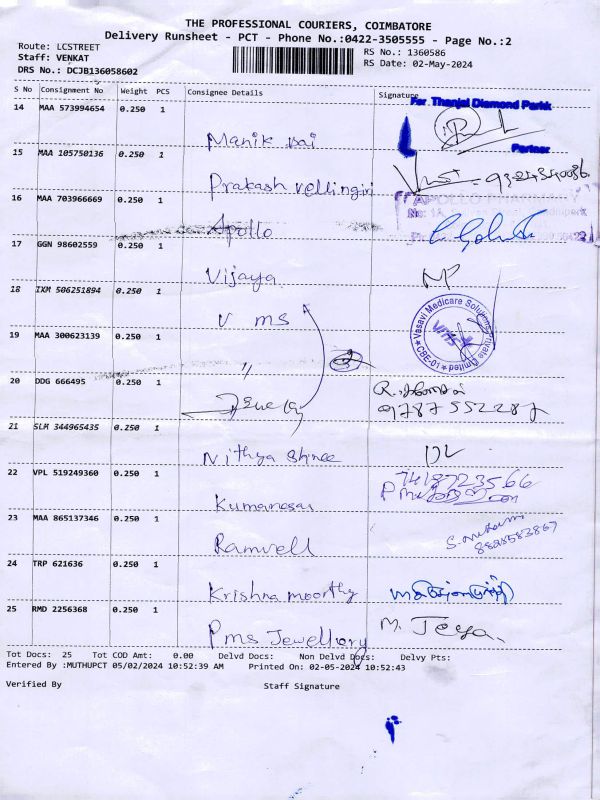 THE PROFESSIONAL COURIERS, COIMBATORE
Delivery Runsheet - PCT - Phone No.:0422-3505555 - Page No.:2
Route: LCSTREET
Staff: VENKAT
DRS No.: DCJB136058602
RS No.: 1360586
RS Date: 02-May-2024
S No Consignment No Weight PCS Consignee Details Signature
For Thanjai Diamond Parkk
14 MAA 573994654 0.250 1 Manik bai
Partner
15 MAA 105750136 0.250 1 Prakash vellingiri
16 MAA 703966669 0.250 1 Apollo
APOLLO PHARMACY
17 GGN 98602559 0.250 1 Vijaya NP
18 IXM 506251894 0.250 1 V ms
Vasavi Medicare Solutions Private Limited
CBE-01
19 MAA 300623139 0.250 1 "
20 DDG 666495 0.250 1
9787552287
21 SLM 344965435 0.250 1 Nithya Shree DL
22 VPL 519249360 0.250 1 Kumaresan
7418723566
23 MAA 865137346 0.250 1 Ramvell
8828583867
24 TRP 621636 0.250 1 Krishna moorthy
25 RMD 2256368 0.250 1 Pms Jewellory M. Jeya
Tot Docs: 25 Tot COD Amt: 0.00 Delvd Docs: Non Delvd Docs: Delvy Pts:
Entered By :MUTHUPCT 05/02/2024 10:52:39 AM Printed On: 02-05-2024 10:52:43
Verified By Staff Signature